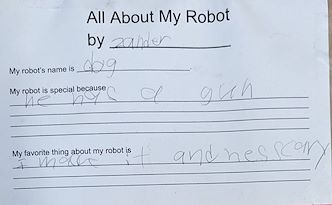 All About My Robot
by zander
My robot's name is dbg
My robot is special because
he has a gun
My favorite thing about my robot is
i made it and hes scary